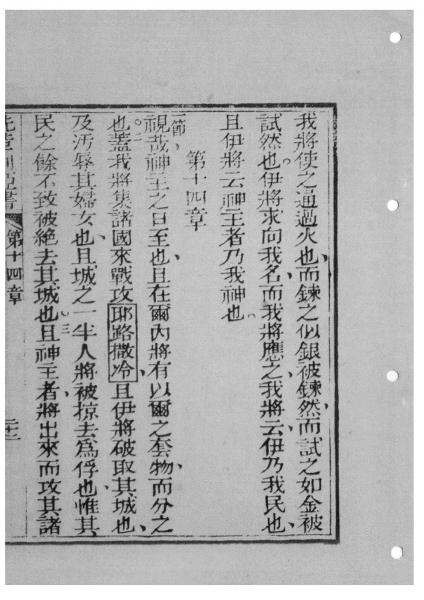 我將使之逼過火也、而鍊之似銀被鍊然而試之如金被
試然也。伊將求向我名、而我將應之、我將云、伊乃我民也、
且伊將云神主者乃我神也。
第十四章
一節、視哉神主之日至也、且在爾內將有以爾之奪物而分之
也。二蓋我將集諸國來戰攻耶路撒冷、且伊將破取其城也、
及污辱其婦女也、且城之一半人將被掠去為俘也、惟其
民之餘不致被絕去其城也。三且神主者、將出來而攻其諸
第十四章